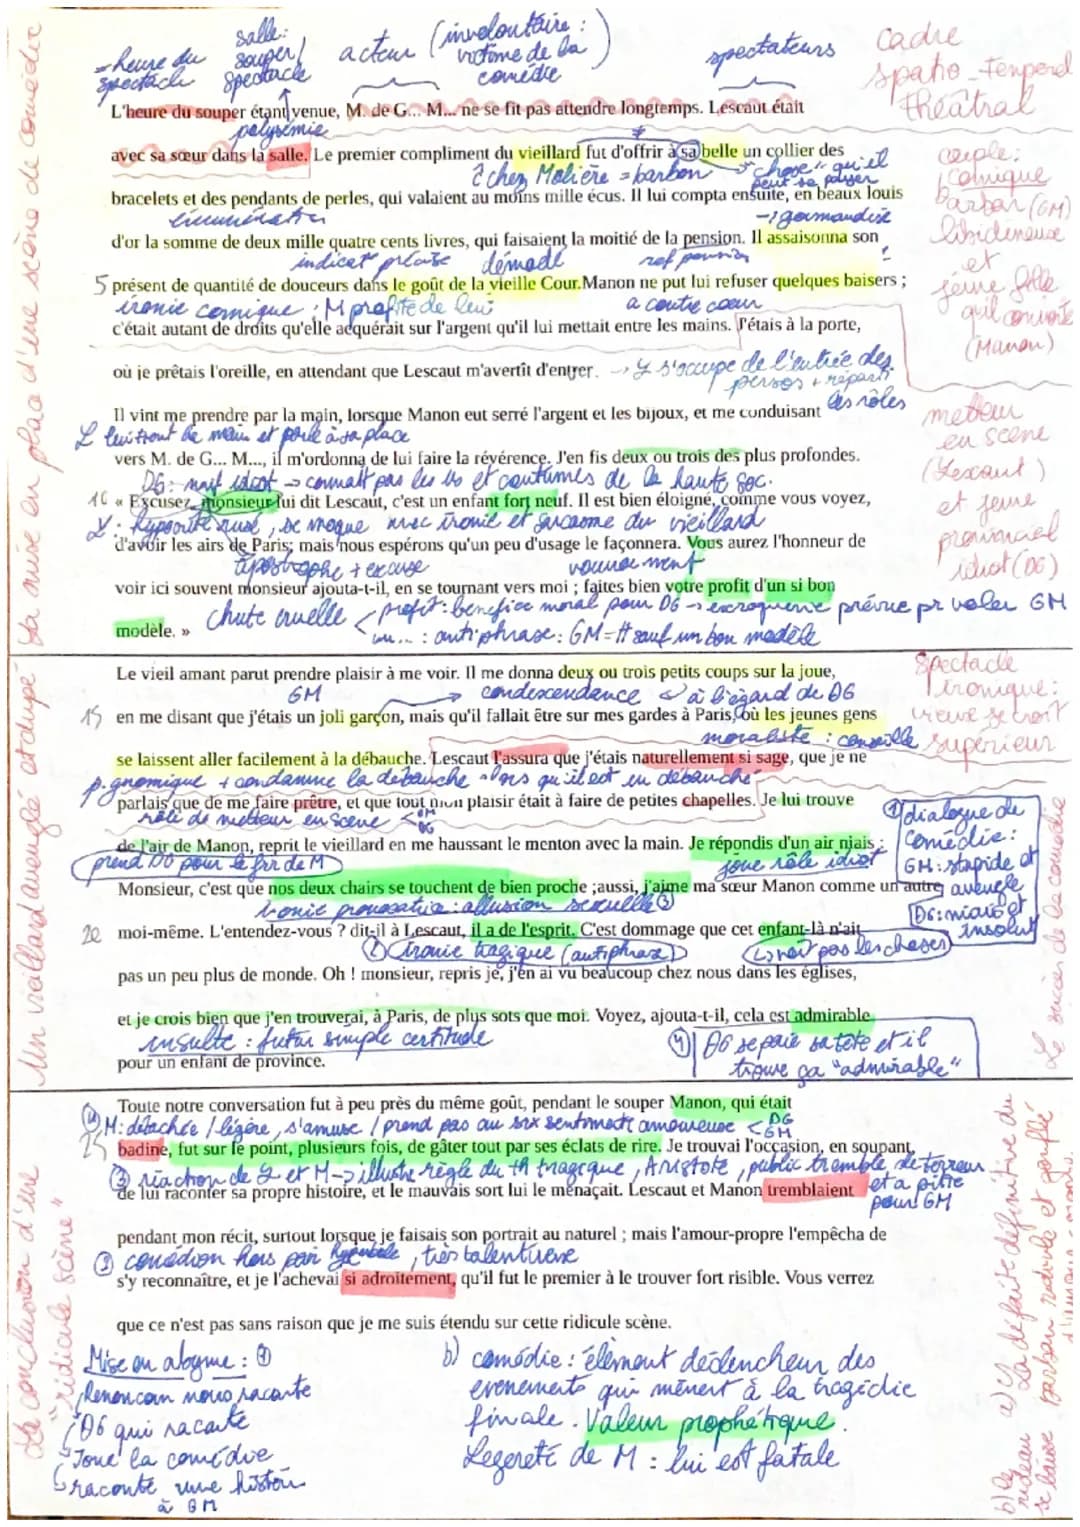 salle:
souper/
spectacle
→ heure du
spectacle
acteur (involontaire :
victime de la
comédie)
spectateurs
cadre
spatio-temporel
théâtral
L'heure du souper étant venue, M. de G... M... ne se fit pas attendre longtemps. Lescaut était
polysémie
avec sa sœur dans la salle. Le premier compliment du vieillard fut d'offrir à sa belle un collier des
chez Molière = barbon
"chose" qu'il
peut se payer
couple:
comique
barbon (GM)
libidineuse
et
jeune fille
qu'il convoite
(Manon)
bracelets et des pendants de perles, qui valaient au moins mille écus. Il lui compta ensuite, en beaux louis
énumération
→ gourmandise
d'or la somme de deux mille quatre cents livres, qui faisaient la moitié de la pension. Il assaisonna son
démodé
5 présent de quantité de douceurs dans le goût de la vieille Cour. Manon ne put lui refuser quelques baisers ;
ironie comique : M profite de lui
a contre cœur
c'était autant de droits qu'elle acquérait sur l'argent qu'il lui mettait entre les mains. J'étais à la porte,
où je prêtais l'oreille, en attendant que Lescaut m'avertît d'entrer.
→ L s'occupe de l'entrée des
persos + répartit
les rôles
Il vint me prendre par la main, lorsque Manon eut serré l'argent et les bijoux, et me conduisant
et parle à sa place
metteur
en scène
(Lescaut)
et jeune
provincial
idiot (DG)
vers M. de G... M..., il m'ordonna de lui faire la révérence. J'en fis deux ou trois des plus profondes.
DG: naïf idiot → connaît pas les us et coutumes de la haute soc.
10 « Excusez, monsieur lui dit Lescaut, c'est un enfant fort neuf. Il est bien éloigné, comme vous voyez,
L: hypocrite rusé, se moque avec ironie et sarcasme du vieillard
d'avoir les airs de Paris; mais nous espérons qu'un peu d'usage le façonnera. Vous aurez l'honneur de
apostrophe + excuse
voir ici souvent monsieur ajouta-t-il, en se tournant vers moi ; faites bien votre profit d'un si bon
Chute cruelle
profit: bénéfice moral pour DG → escroquerie prévue pr voler GM
modèle. »
un... : antiphrase: GM = tt sauf un bon modèle
La mise en place d'une scène de comédie
Le vieil amant parut prendre plaisir à me voir. Il me donna deux ou trois petits coups sur la joue,
GM
condescendance à l'égard de DG
Spectacle
ironique:
vieux se croit
supérieur
15 en me disant que j'étais un joli garçon, mais qu'il fallait être sur mes gardes à Paris, où les jeunes gens
moraliste : conseille
se laissent aller facilement à la débauche. Lescaut l'assura que j'étais naturellement si sage, que je ne
p. gnomique + condamne la débauche alors qu'il est en débauché
parlais que de me faire prêtre, et que tout mon plaisir était à faire de petites chapelles. Je lui trouve
rôle de metteur en scène
GM
DG
① dialogue de
comédie:
GM: stupide et
aveugle
DG: niais et
insolent
de l'air de Manon, reprit le vieillard en me haussant le menton avec la main. Je répondis d'un air niais :
prend DG pour le frr de M
joue rôle idiot
Monsieur, c'est que nos deux chairs se touchent de bien proche ;aussi, j'aime ma sœur Manon comme un autre
ironie provocatrice : allusion sexuelle ③
20 moi-même. L'entendez-vous ? dit-il à Lescaut, il a de l'esprit. C'est dommage que cet enfant-là n'ait
② ironie tragique (antiphrase)
pas un peu plus de monde. Oh ! monsieur, repris je, j'en ai vu beaucoup chez nous dans les églises,
et je crois bien que j'en trouverai, à Paris, de plus sots que moi. Voyez, ajouta-t-il, cela est admirable
insulte : futur simple certitude
④ DG se paie sa tête et il
trouve ça "admirable"
pour un enfant de province.
Un vieillard aveuglé et dupé
Le succès de la comédie
Toute notre conversation fut à peu près du même goût, pendant le souper Manon, qui était
M: détachée / légère, s'amuse / prend pas au srx sentiments amoureuse
DG
GM
25 badine, fut sur le point, plusieurs fois, de gâter tout par ses éclats de rire. Je trouvai l'occasion, en soupant,
réaction de L et M → illustre règle du th tragique, Aristote, public tremble de terreur
et a pitié
pour GM
de lui raconter sa propre histoire, et le mauvais sort lui le ménaçait. Lescaut et Manon tremblaient
pendant mon récit, surtout lorsque je faisais son portrait au naturel ; mais l'amour-propre l'empêcha de
comédien hors pair, très talentueux
s'y reconnaître, et je l'achevai si adroitement, qu'il fut le premier à le trouver fort risible. Vous verrez
que ce n'est pas sans raison que je me suis étendu sur cette ridicule scène.
La conclusion d'une
"ridicule scène"
Mise en abyme :
Renoncour nous raconte
DG qui raconte
Joue la comédie
raconte une histoire
à GM
b) comédie : élément déclencheur des
évènements qui mènent à la tragédie
finale. Valeur prophétique.
Legereté de M : lui est fatale
La defaite définitive du
barbon ridicule et gonflé
b) le
rideau
se baisse